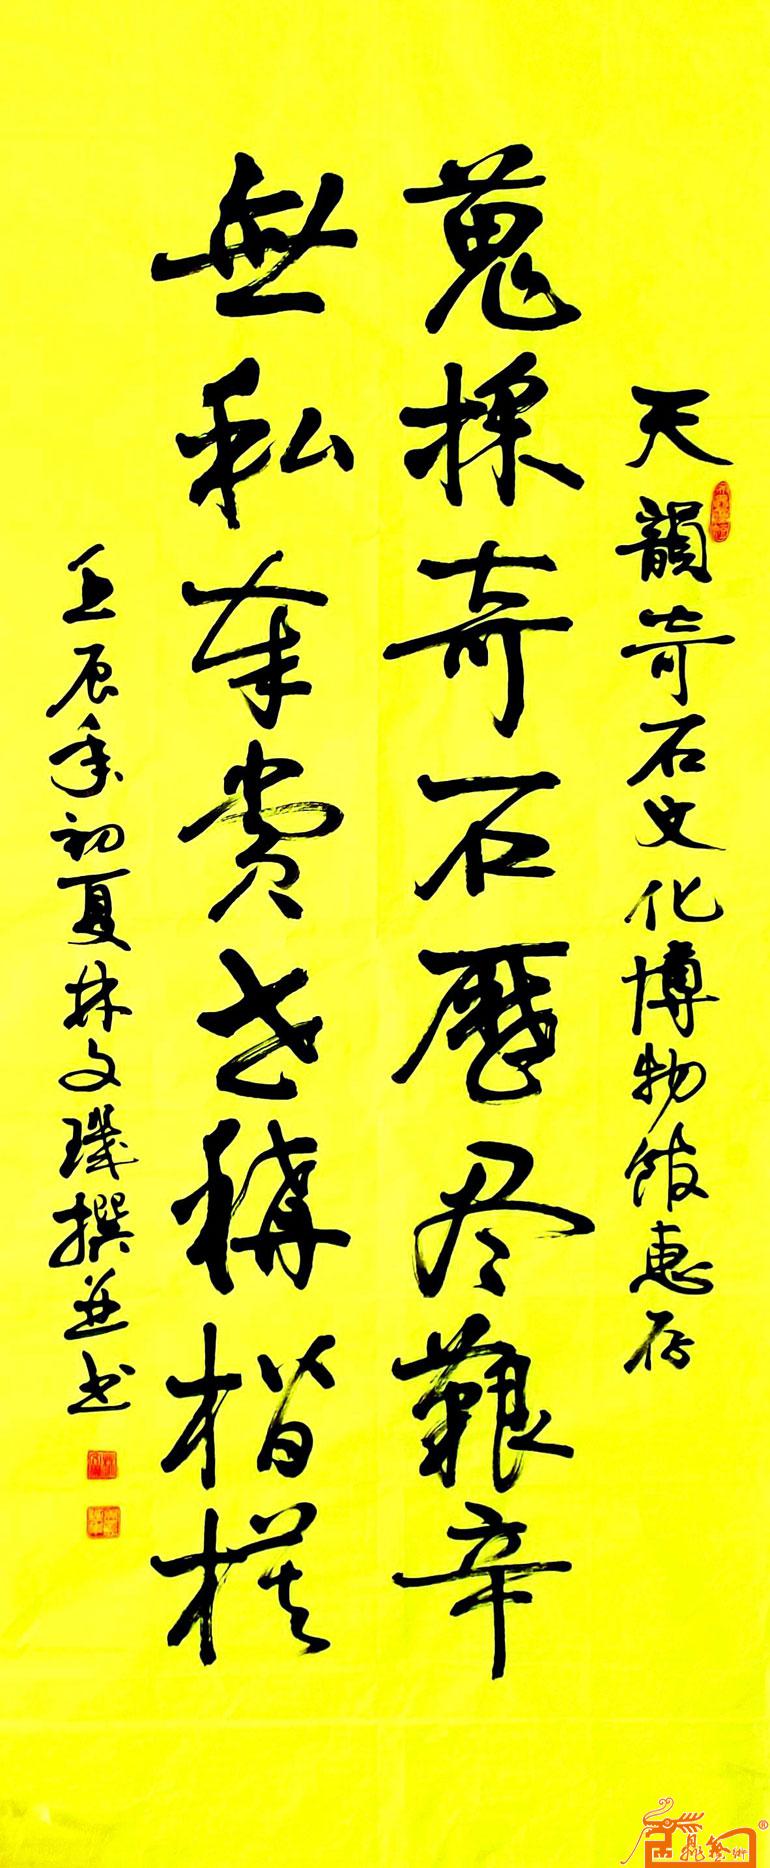 天韻奇石文化博物馆惠存
蒐採奇石歷尽艱辛
無私奉賞世稱楷模
壬辰年初夏林文璣撰并书